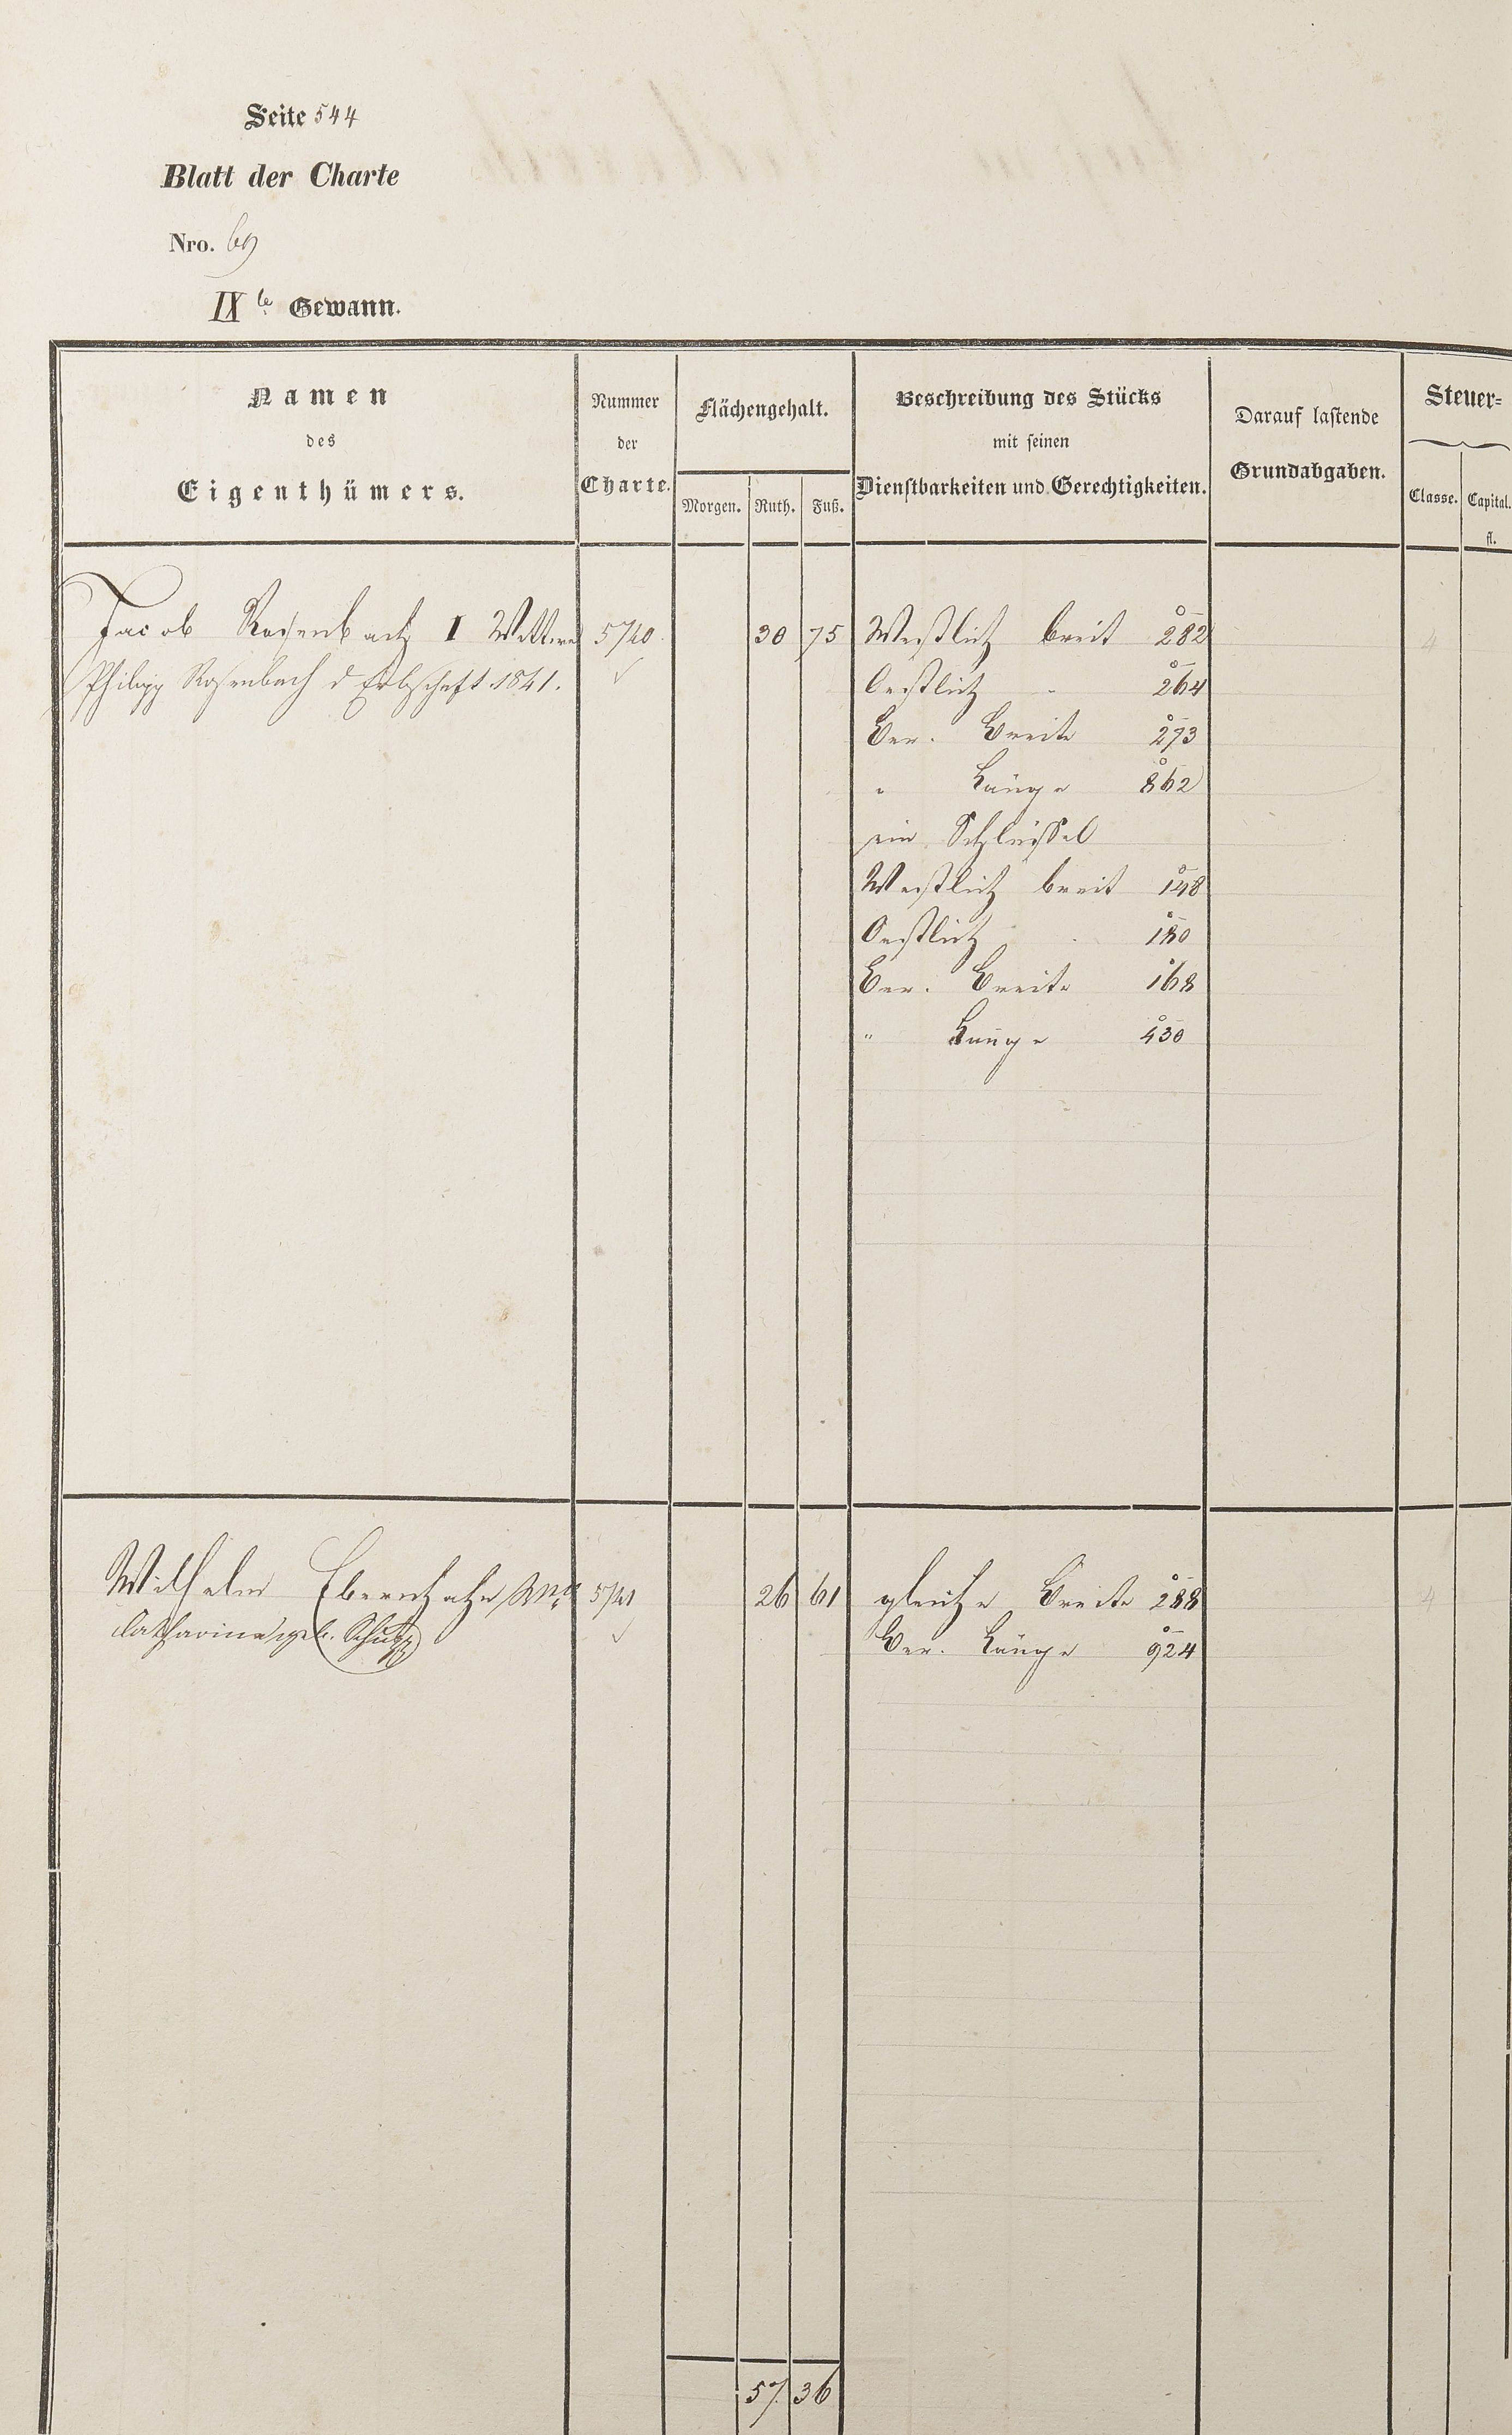 Seite 544
Blatt der Charte
Nro. 69
IX te Gewann.
Namen
des
Eigenthümers.
Nummer
der
Charte.
Flächengehalt.
Morgen. Ruth. Fuß.
Beschreibung des Stücks
mit seinen
Dienstbarkeiten und Gerechtigkeiten.
Darauf lastende
Grundabgaben.
Steuer=
Classe. Capital.
fl.
Jacob Rosenbach I Wittwe 5740 30 75 Westlich breit 282 4
Philipp Rosenbach d Erbschaft 1841.
Oestlich " 264
Ver. Breite 273
" Länge 862
ein Schlüssel
Westlich breit 148
Oestlich " 180
Ver. Breite 168
" Länge 430
Wilhelm Ebernhahn 5741 26 61 gleiche Breite 288 4
Catharina geb. Schupp
Ver. Länge 924
57 36